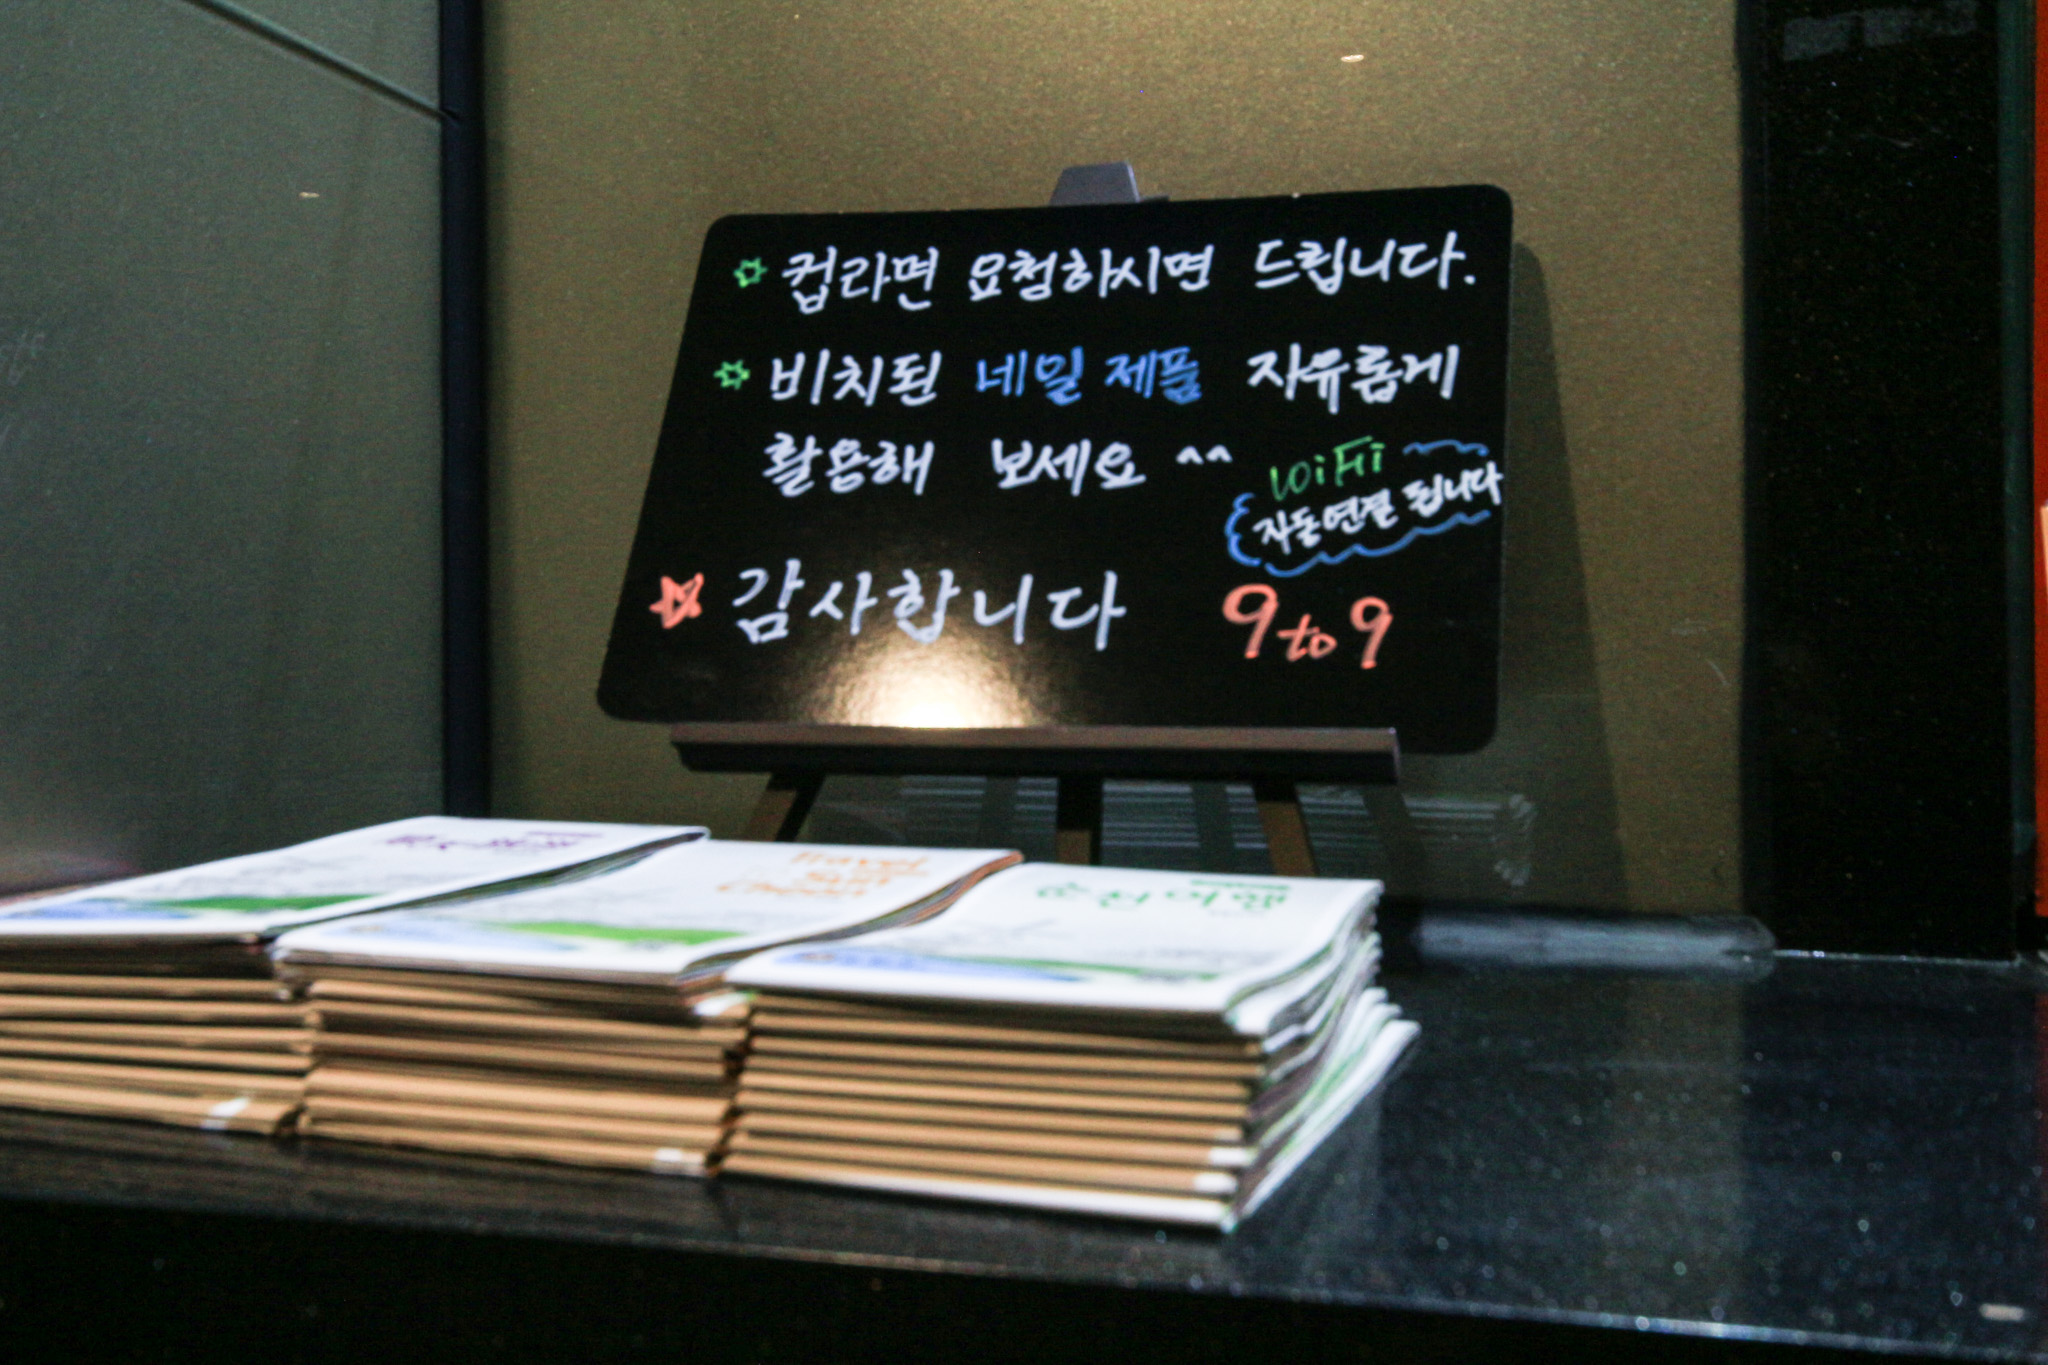 컵라면 요청하시면 드립니다.
비치된 네일 제품 자유롭게
활용해 보세요 ^^
WiFi
자동연결 됩니다
감사합니다 9 to 9
Travel
순천여행